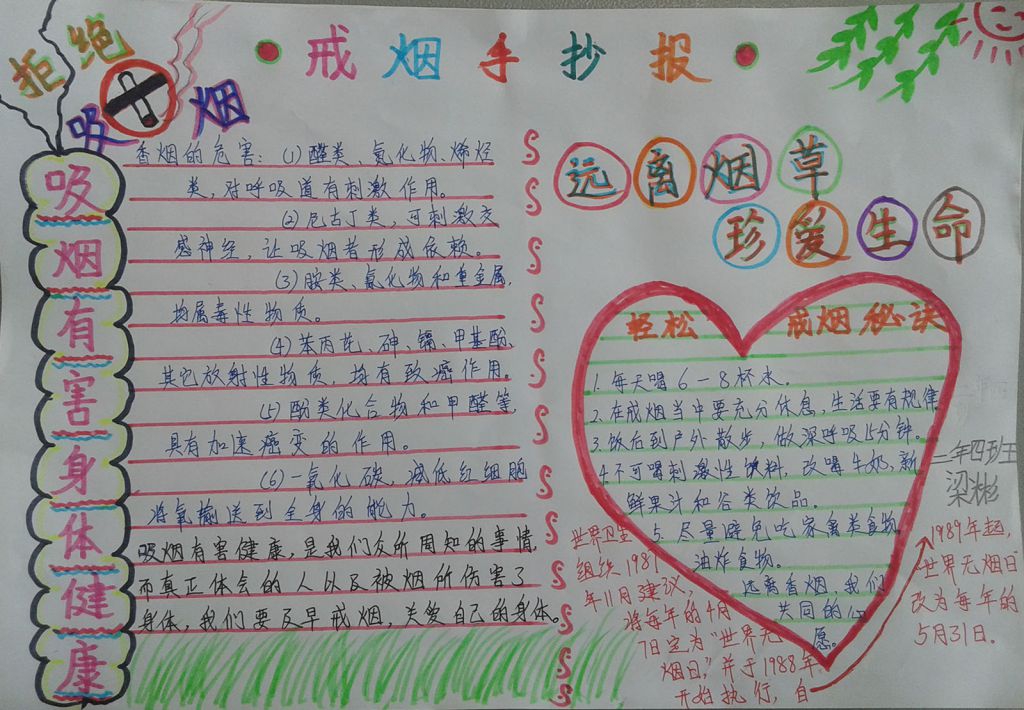 戒烟手抄报
拒绝
吸烟
吸烟有害身体健康
香烟的危害:(1)醛类、氮化物、烯烃
类,对呼吸道有刺激作用。
(2)尼古丁类,可刺激交
感神经,让吸烟者形成依赖。
(3)胺类、氰化物和重金属,
均属毒性物质。
(4)苯丙芘、砷、镉、甲基酚、
其它放射性物质,均有致癌作用。
(5)酚类化合物和甲醛等,
具有加速癌变的作用。
(6)一氧化碳,减低红细胞
将氧输送到全身的能力。
吸烟有害健康,是我们众所周知的事情,
而真正体会的人以及被烟所伤害了
身体,我们要及早戒烟,关爱自己的身体。
远离烟草
珍爱生命
轻松 戒烟秘诀
1.每天喝6-8杯水。
2.在戒烟当中要充分休息,生活要有规律
3.饭后到户外散步,做深呼吸15分钟。
4.不可喝刺激性饮料,改喝牛奶,新
鲜果汁和谷类饮品。
5.尽量避免吃家禽类食物,
油炸食物。
远离香烟我们
共同的心
愿。
二年四班
梁彬
世界卫生
组织1987
年11月建议,
将每年的4月
7日定为“世界无
烟日”,并于1988年
开始执行,自
1989年起,
世界无烟日
改为每年的
5月31日。